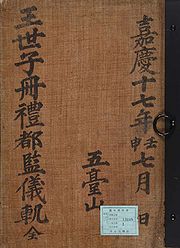 嘉慶十七年壬申七月 日
五臺山
王世子冊禮都監儀軌 全